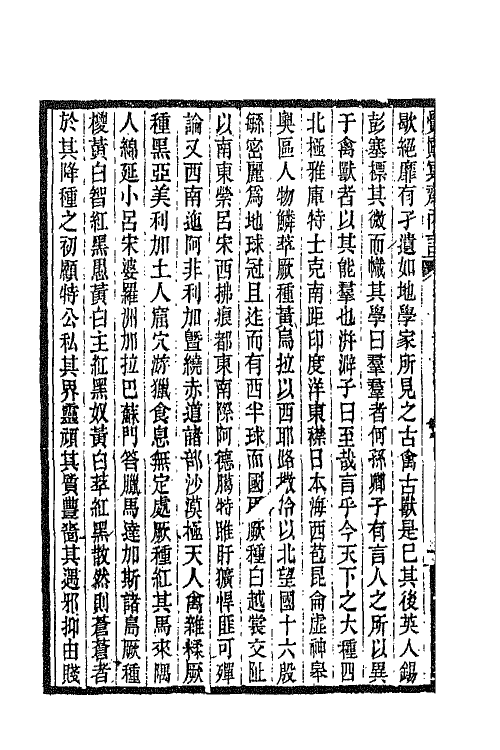 歇絕靡有孑遺如地學家所見之古禽古獸是已其後英人錫
彭塞標其微而幟其學曰羣羣者何孫卿子有言人之所以異
于禽獸者以其能羣也洴澼子曰至哉言乎今天下之大種四
北極雅庫特士克南距印度洋東襟日本海西苞昆侖虛神皋
奧區人物鱗萃厥種黃烏拉以西耶路撒冷以北望國十六殷
緐密麗爲地球冠且迻而有西半球面國 厥種白越裳交阯
以南東縈呂宋西拂痕都東南際阿德臈特睢盱獷悍匪可殫
論又西南迤阿非利加暨繞赤道諸部沙漠極天人禽雜糅厥
種黑亞美利加土人窟穴游獵食息無定處厥種紅其馬來隅
人綿延小呂宋婆羅洲加拉巴蘇門答臘馬達加斯諸島厥種
椶黃白智紅黑愚黃白主紅黑奴黃白萃紅黑散然則蒼蒼者
於其降種之初顧特公私其界靈頑其質豐嗇其遇邪抑由賤